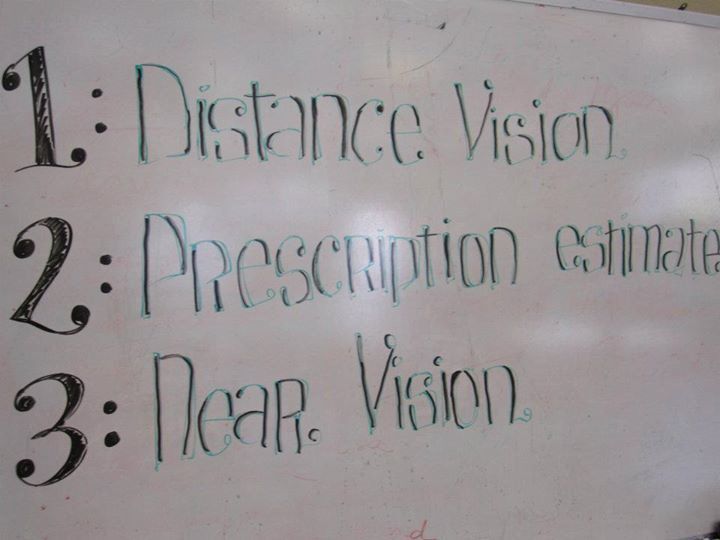 1: Distance Vision
2: Prescription estimate
3: Near Vision
d